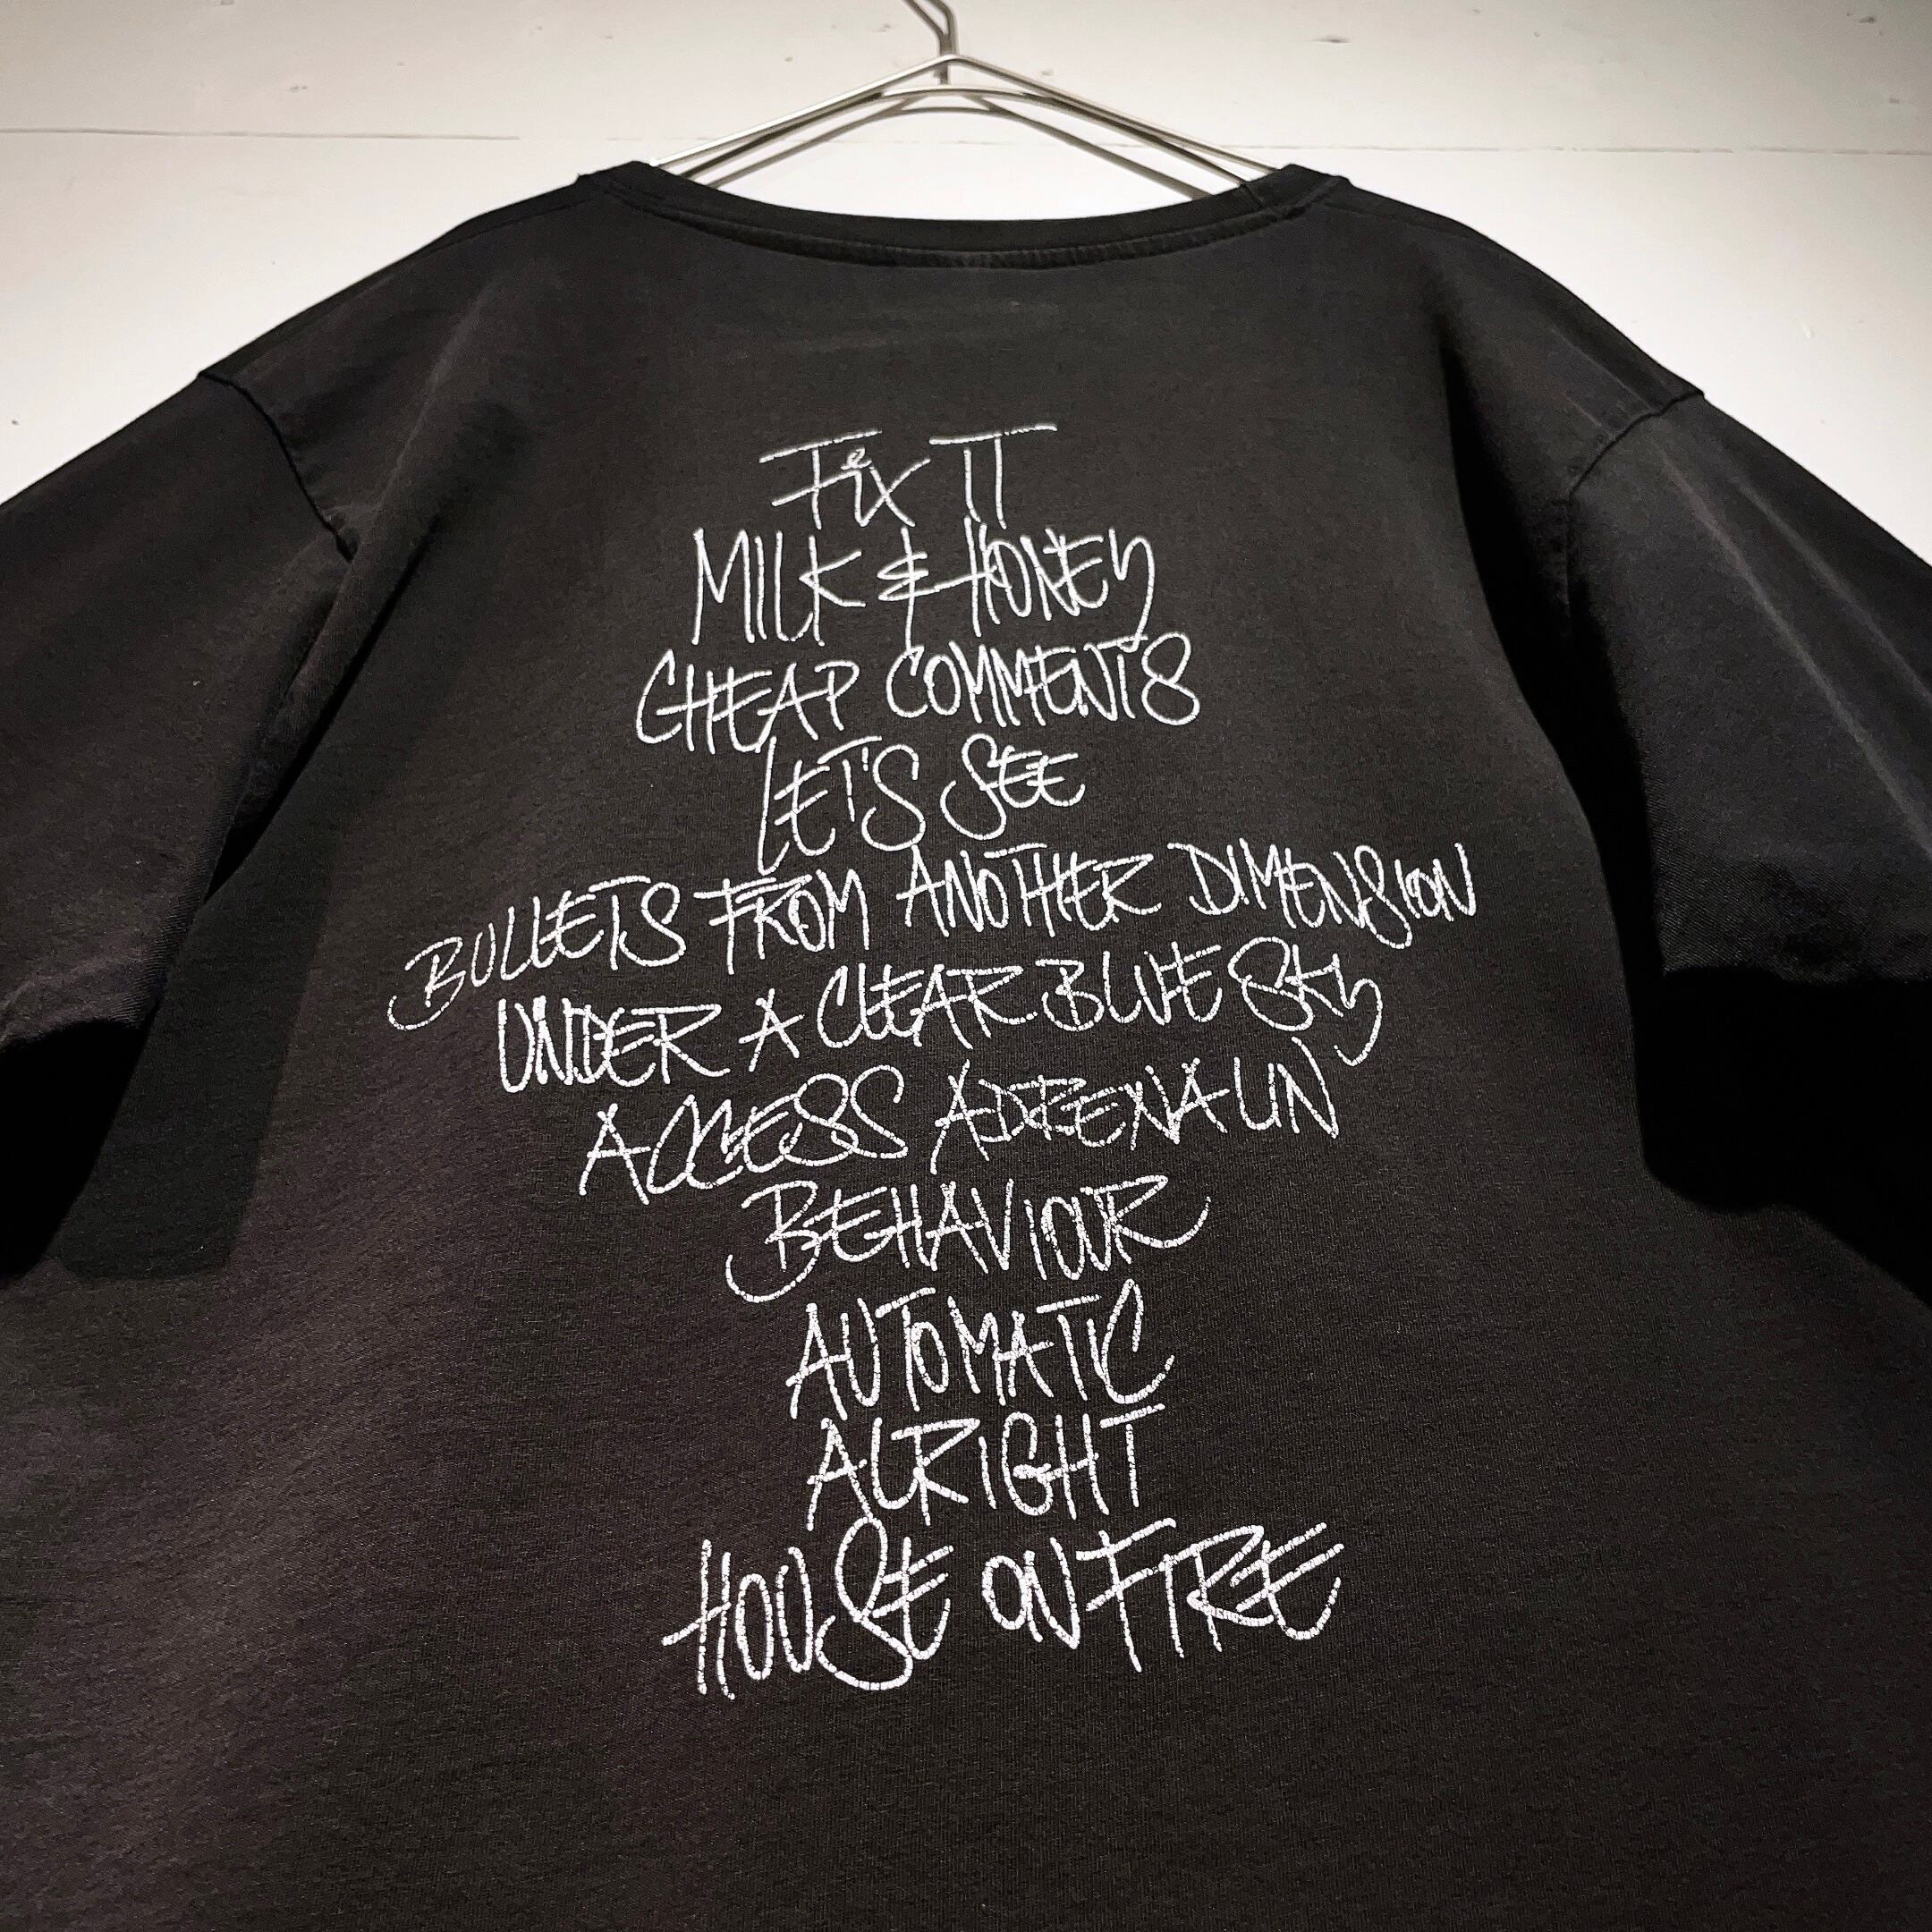 FiX IT
MILK & HONEY
CHEAP COMMENTS
LET'S SEE
BULLETS FROM ANOTHER DIMENSION
UNDER A CLEAR BLUE SKY
ACCESS ADRENALIN
BEHAVIOUR
AUTOMATIC
ALRIGHT
HOUSE ON FIRE